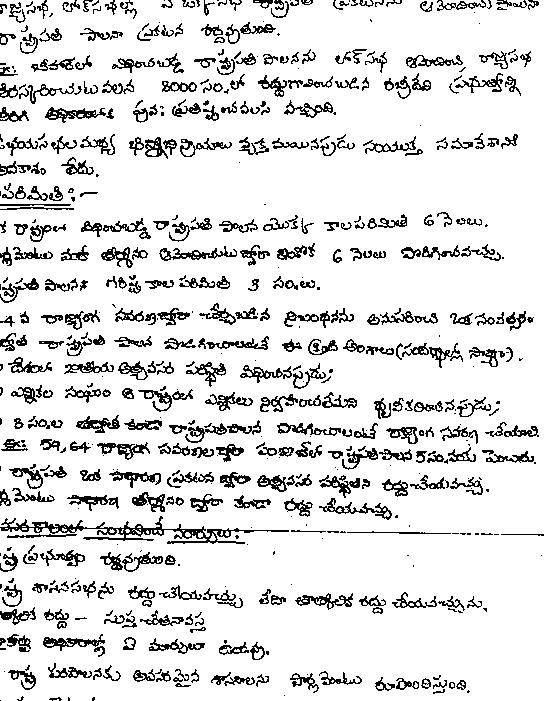 రాజ్యసభ, లోక్‌సభల్లో
రాష్ట్రపతి పాలనా ప్రకటన రద్దవుతుంది.
Ex: బీహార్‌లో విధించబడ్డ రాష్ట్రపతి పాలనను లోక్‌సభ ఆమోదించి, రాజ్యసభ
తిరస్కరించుట వలన సం.లో రద్దుగావించబడిన రబ్రీదేవి ప్రభుత్వాన్ని
తిరిగి అధికారంలోకి పున: ప్రతిష్టించవలసి వచ్చింది.
ఉభయసభల మధ్య భిన్నాభిప్రాయాలు వ్యక్తమయినపుడు సంయుక్త సమావేశానికి
అవకాశం లేదు.
పరిమితి :-
ఒక రాష్ట్రంలో విధించబడ్డ రాష్ట్రపతి పాలన యొక్క కాలపరిమితి 6 నెలలు.
పార్లమెంటు మరో తీర్మానం ఆమోదించుట ద్వారా ఇంకొక 6 నెలలు పొడిగించవచ్చు.
రాష్ట్రపతి పాలన గరిష్ట కాల పరిమితి 3 సం.లు.
4 వ రాజ్యాంగ సవరణ ద్వారా చేర్చబడిన నిబంధనను అనుసరించి ఒక సంవత్సరం
తర్వాత రాష్ట్రపతి పాలన పొడిగించాలంటే ఈ క్రింది అంశాలు
దేశంలో జాతీయ అత్యవసర పరిస్థితి విధించినప్పుడు;
ఎన్నికల సంఘం ఆ రాష్ట్రంలో ఎన్నికలు నిర్వహించలేమని ధృవీకరించినప్పుడు;
3 సం.ల తర్వాత కూడా రాష్ట్రపతిపాలన పొడిగించాలంటే రాజ్యాంగ సవరణ చేయాలి.
Ex: 59, 64 రాజ్యాంగ సవరణల ద్వారా పంజాబ్‌లో రాష్ట్రపతిపాలన 5 సం.లకు పెంచారు.
రాష్ట్రపతి ఒక సాధారణ ప్రకటన ద్వారా అత్యవసర పరిస్థితిని రద్దు చేయవచ్చు.
పార్లమెంటు సాధారణ తీర్మానం ద్వారా కూడా రద్దు చేయవచ్చు.
అత్యవసర కాలంలో సంభవించే మార్పులు:-
రాష్ట్ర ప్రభుత్వం రద్దవుతుంది.
రాష్ట్ర శాసనసభను రద్దు చేయవచ్చు లేదా తాత్కాలిక రద్దు చేయవచ్చును.
తాత్కాలిక రద్దు - సుప్త చేతనావస్థ
హైకోర్టు అధికారాల్లో ఏ మార్పులు ఉండవు.
రాష్ట్ర పరిపాలనకు అవసరమైన శాసనాలను పార్లమెంటు రూపొందిస్తుంది.